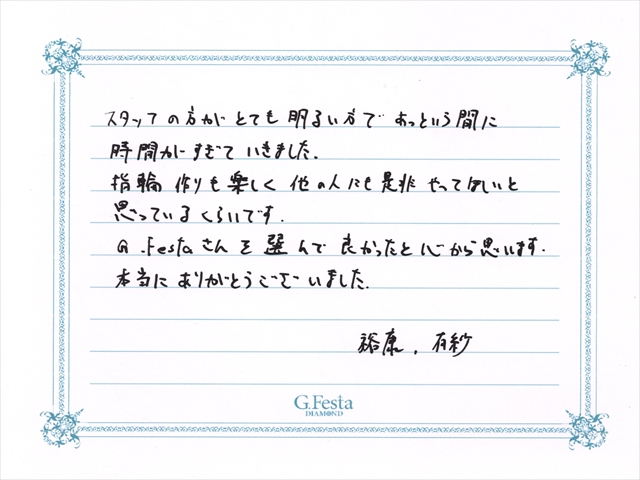 スタッフの方がとても明るい方であっという間に
時間がすぎていきました.
指輪作りも楽しく他の人にも是非やってほしいと
思っているくらいです.
G.Festaさんを選んで良かったと心から思います.
本当にありがとうございました.
裕康. 有紗
G.Festa
DIAMOND